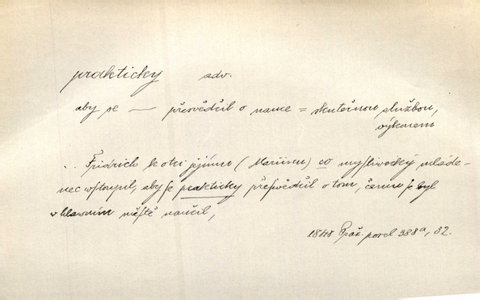 prakticky adv.
aby se — přesvědčil o nauce = skutečnou službou,
výkonem
.. Fridrich k otci jejímu (Mariinu) co myslivecký mláde-
nec wstaupil, aby se prakticky přeswědčil o tom, čemu se byl
w hlawním městě naučil,
1848 Paž. povd 388a, 32.